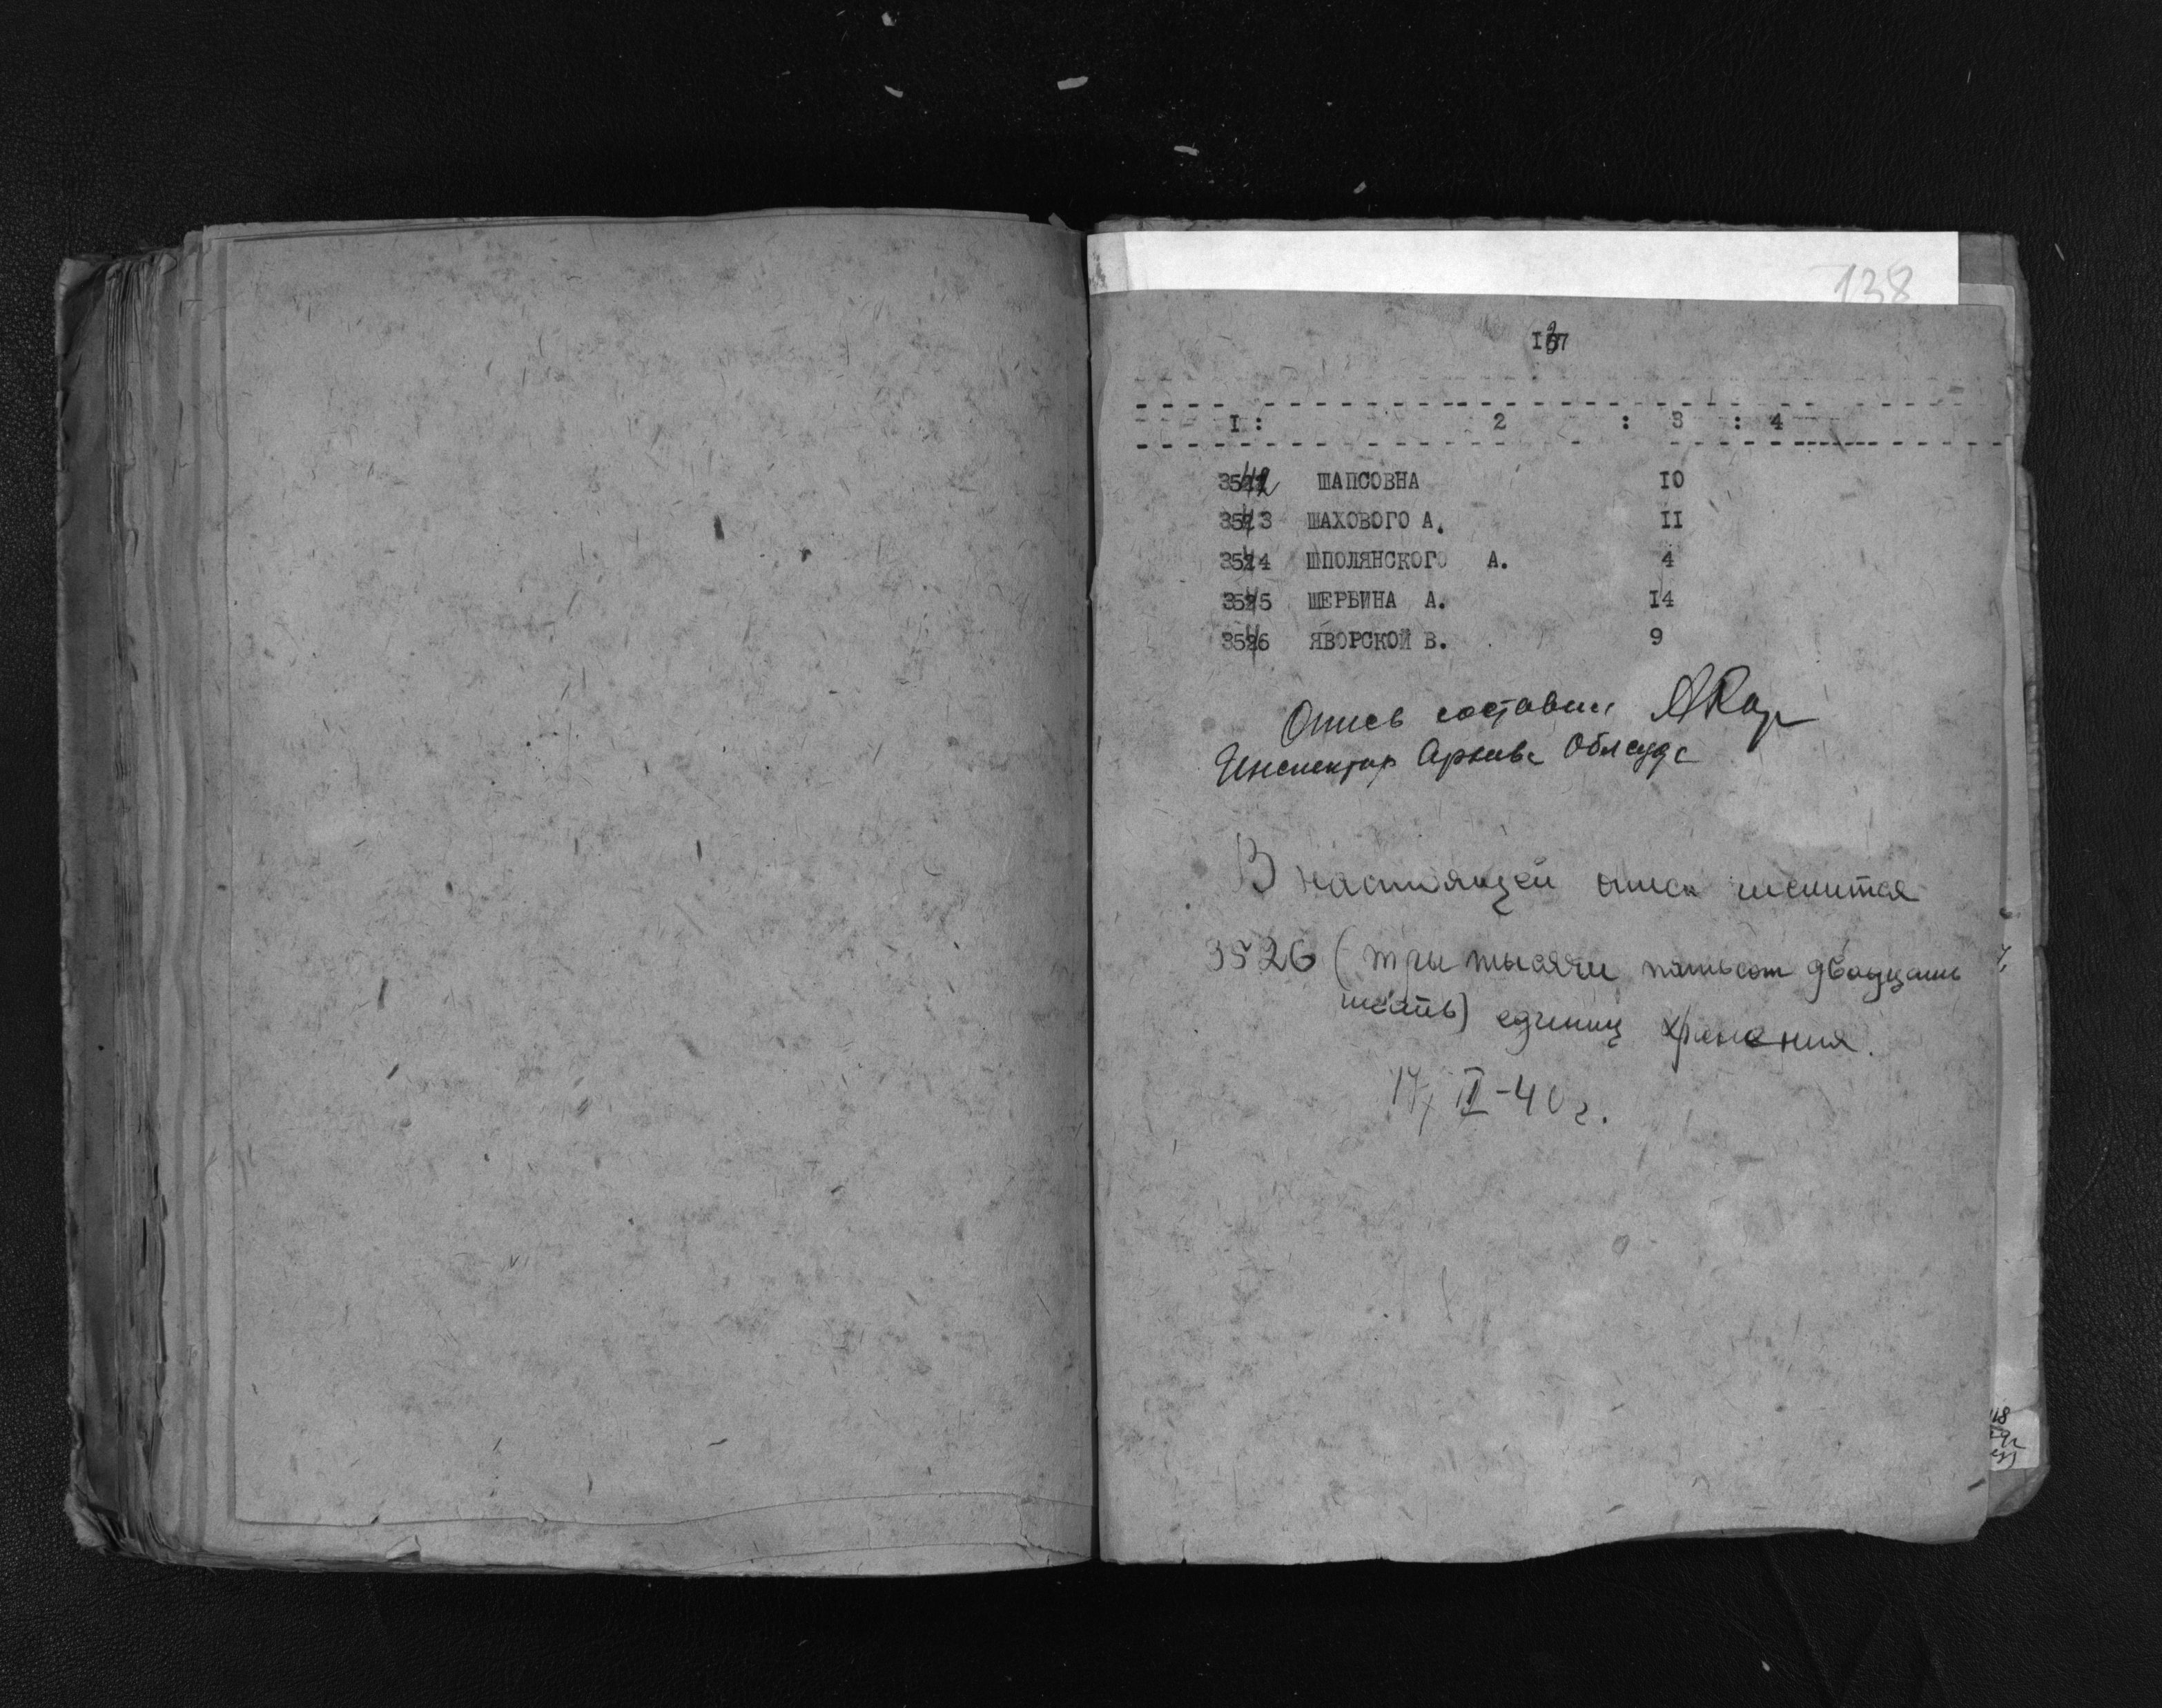 138
137
I : 2 : 3 : 4
3542 ШАПСОВНА 10
3543 ШАХОВОГО А. II
3544 ШПОЛЯНСКОГО А. 4
3545 ШЕРБИНА А. I4
3546 ЯВОРСКОЙ В. 9
Опись составил
Инспектор Архива Облсуда
В настоящей описи числится
3526 (три тысячи пятьсот двадцать
шесть) единиц хранения.
17/II-40 г.